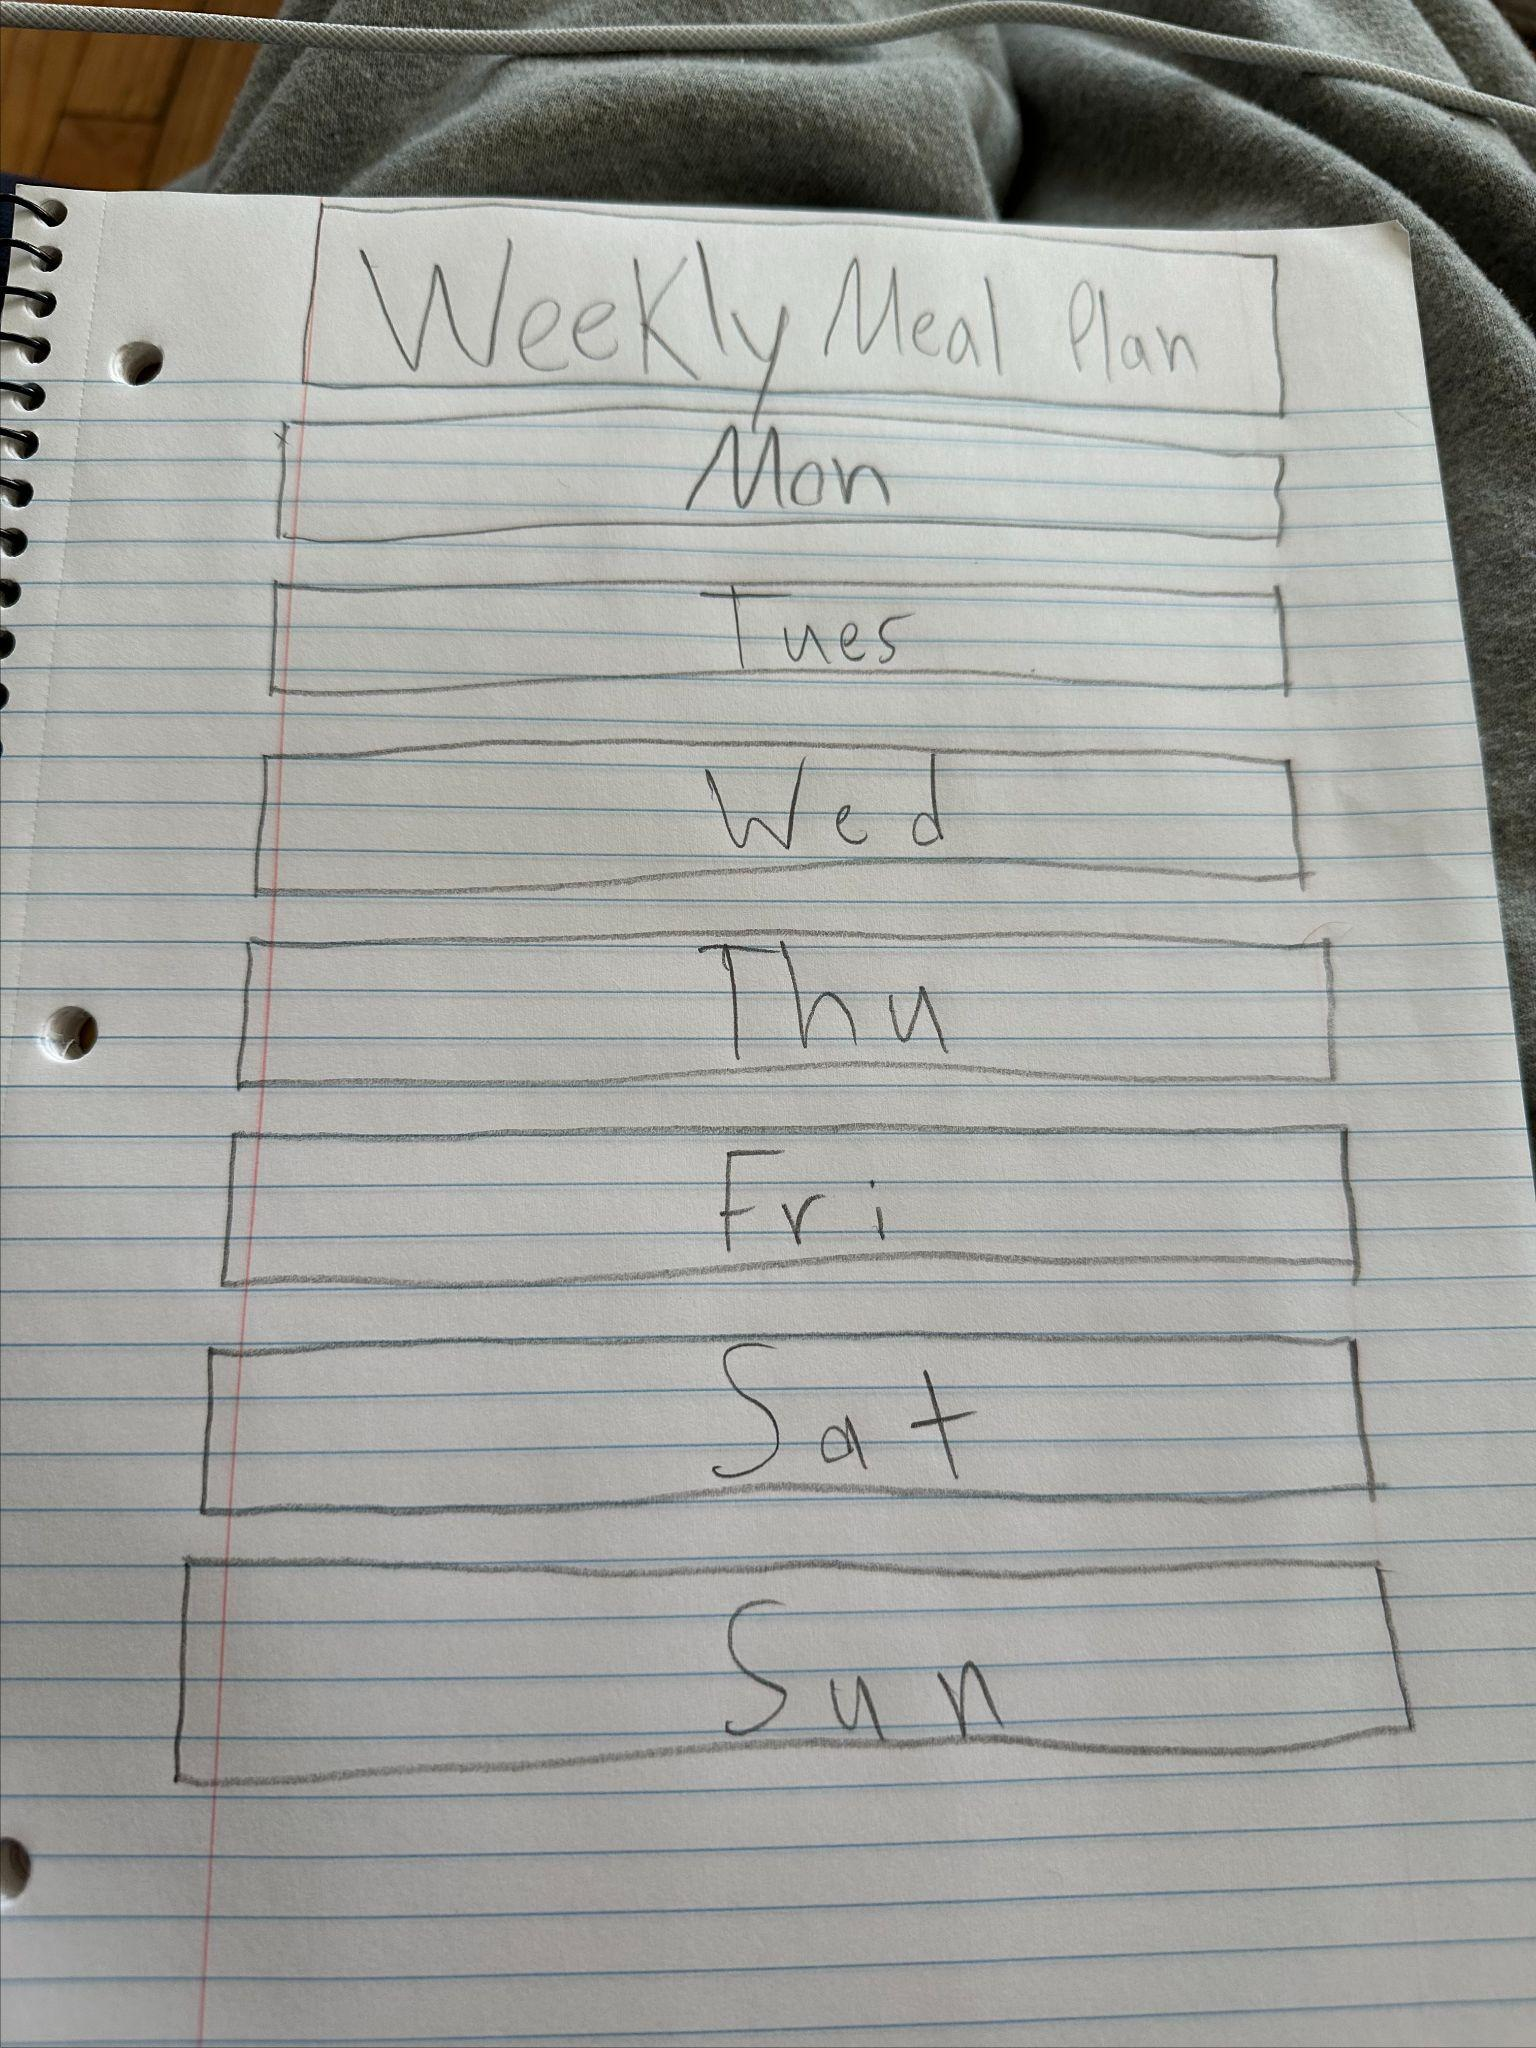 Weekly Meal Plan
Mon
Tues
Wed
Thu
Fri
Sat
Sun